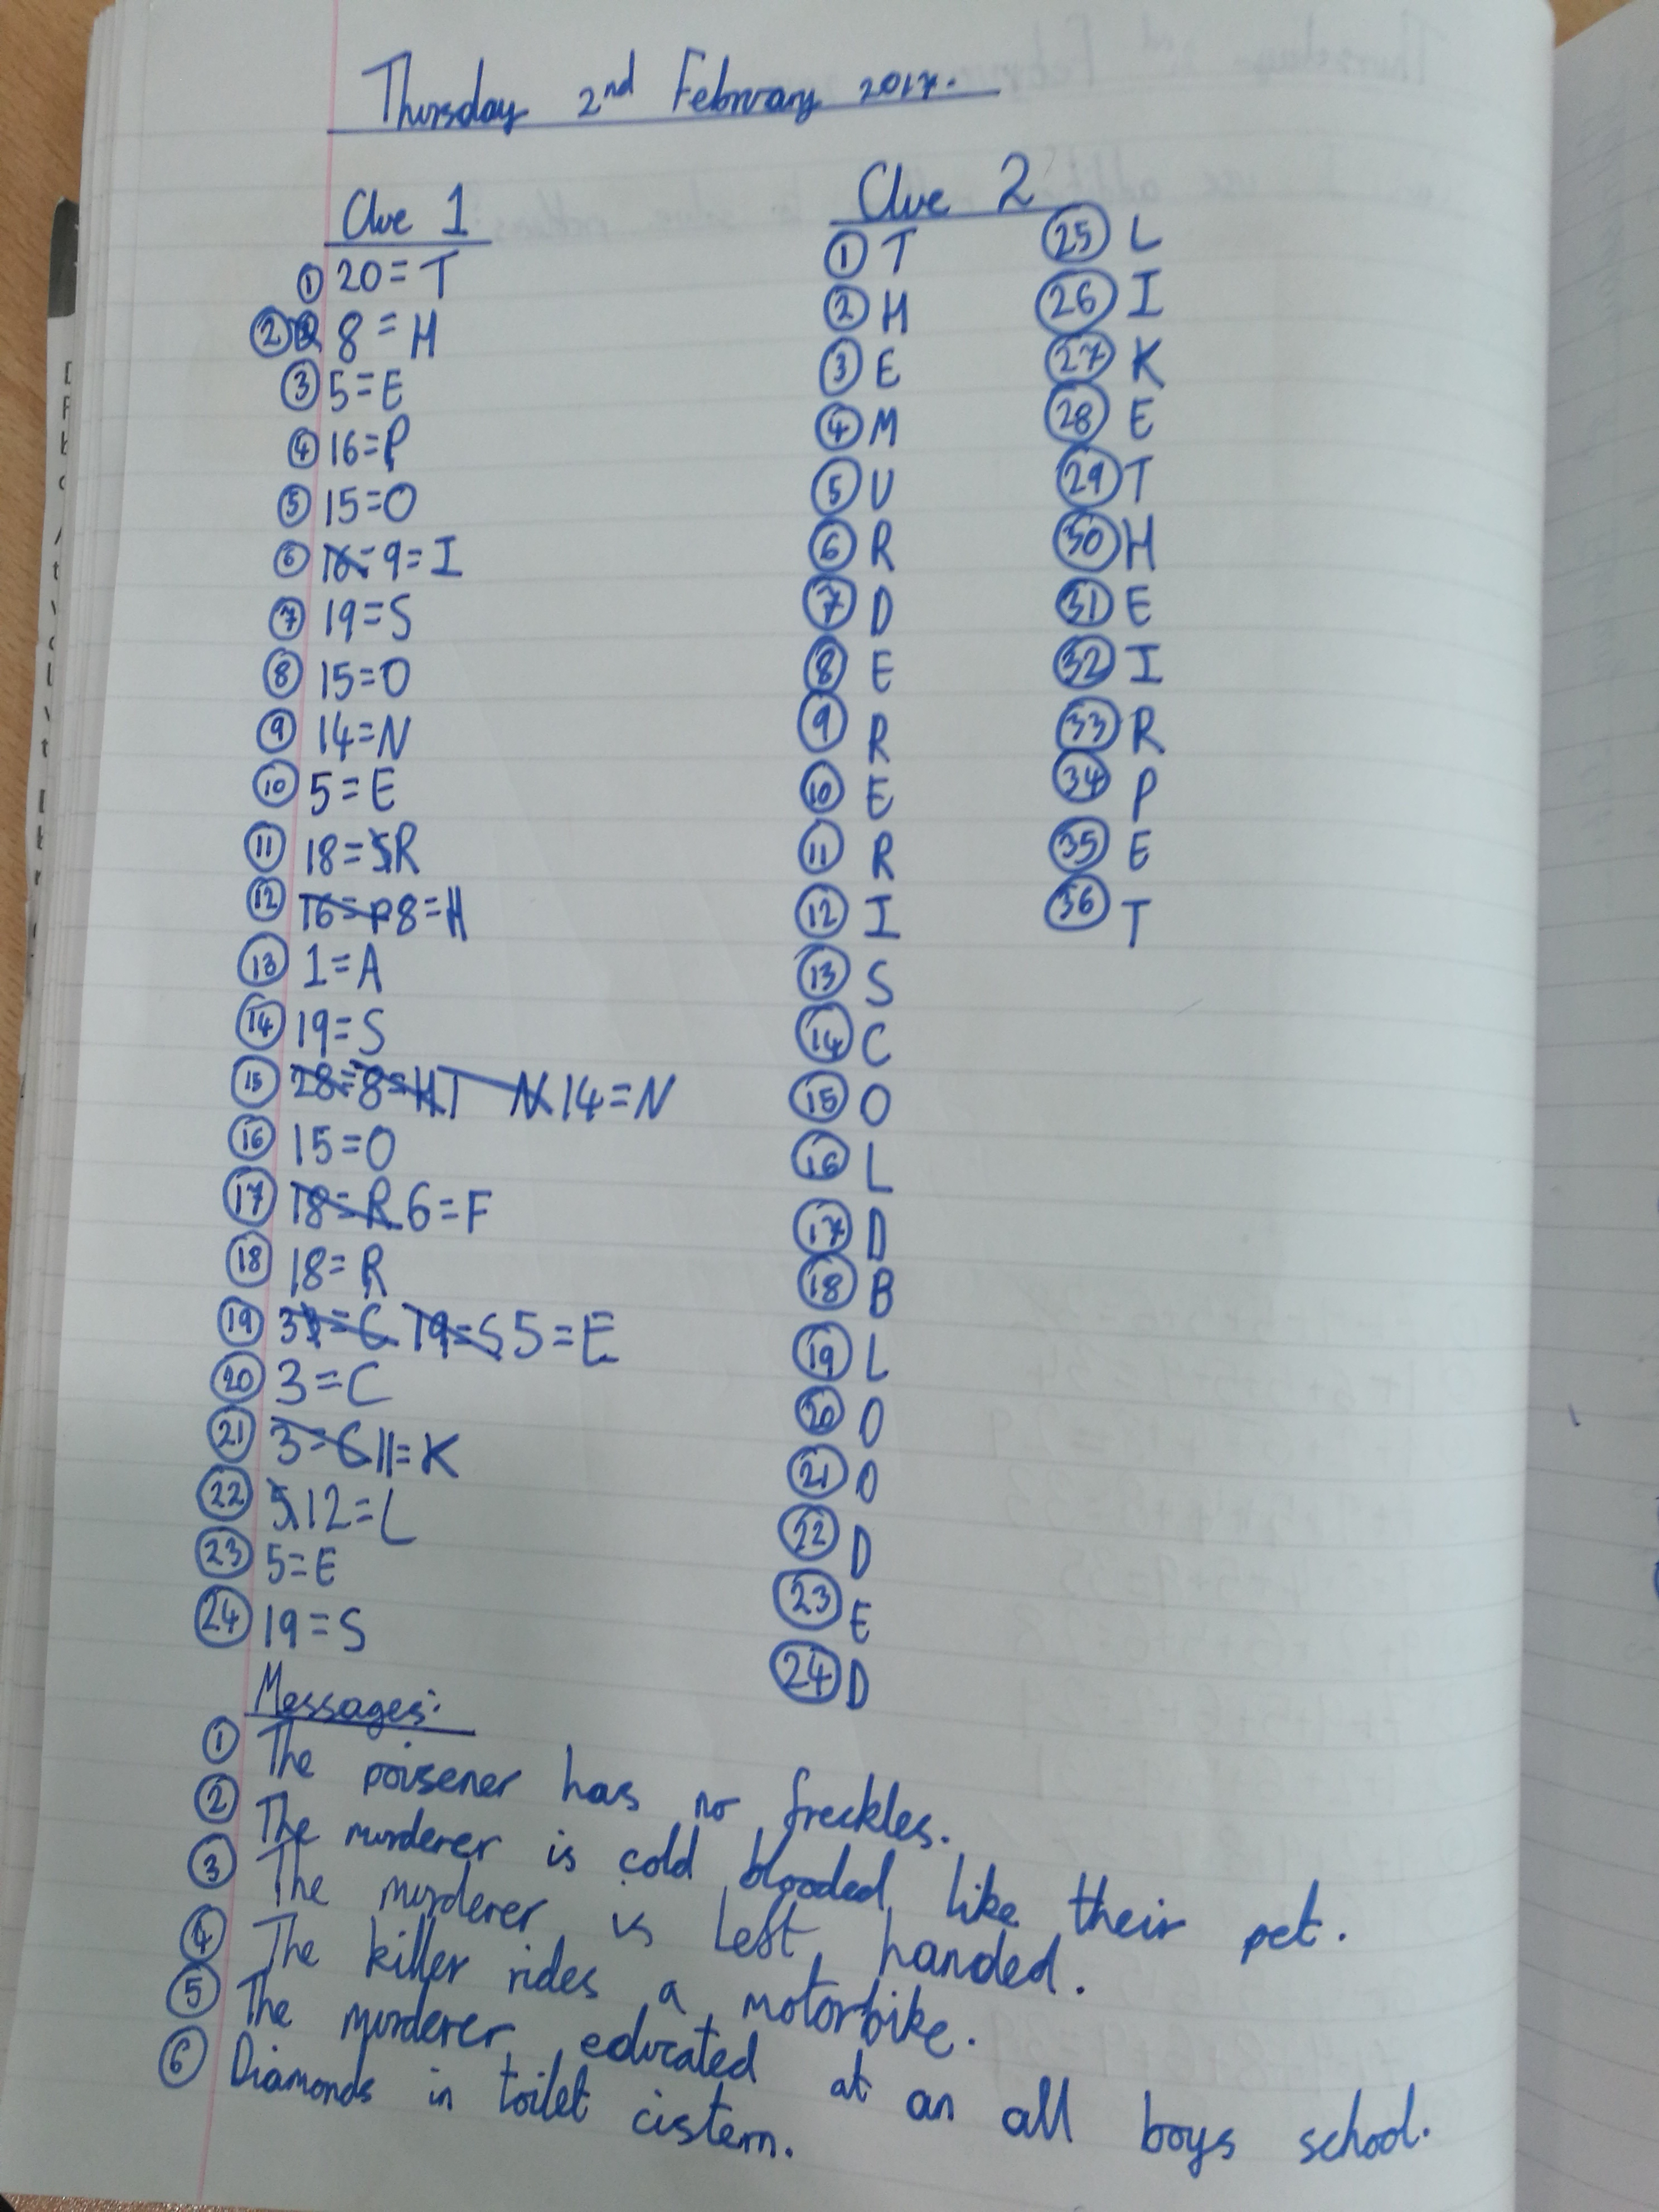 Thursday 2nd February 2017.
Clue 1
① 20=T
② 8=H
③ 5=E
④ 16=P
⑤ 15=O
⑥ 9=I
⑦ 19=S
⑧ 15=O
⑨ 14=N
⑩ 5=E
⑪ 18=R
⑫ 8=H
⑬ 1=A
⑭ 19=S
⑮ 14=N
⑯ 15=O
⑰ 6=F
⑱ 18=R
⑲ 5=E
⑳ 3=C
㉑ 11=K
㉒ 12=L
㉓ 5=E
㉔ 19=S
Clue 2
① T
② H
③ E
④ M
⑤ U
⑥ R
⑦ D
⑧ E
⑨ R
⑩ E
⑪ R
⑫ I
⑬ S
⑭ C
⑮ O
⑯ L
⑰ D
⑱ B
⑲ L
⑳ O
㉑ O
㉒ D
㉓ E
㉔ D
㉕ L
㉖ I
㉗ K
㉘ E
㉙ T
㉚ H
㉛ E
㉜ I
㉝ R
㉞ P
㉟ E
㊱ T
Messages:
① The poisener has no freckles.
② The murderer is cold blooded like their pet.
③ The murderer is left handed.
④ The killer rides a motorbike.
⑤ The murderer educated at an all boys school.
⑥ Diamonds in toilet cistern.